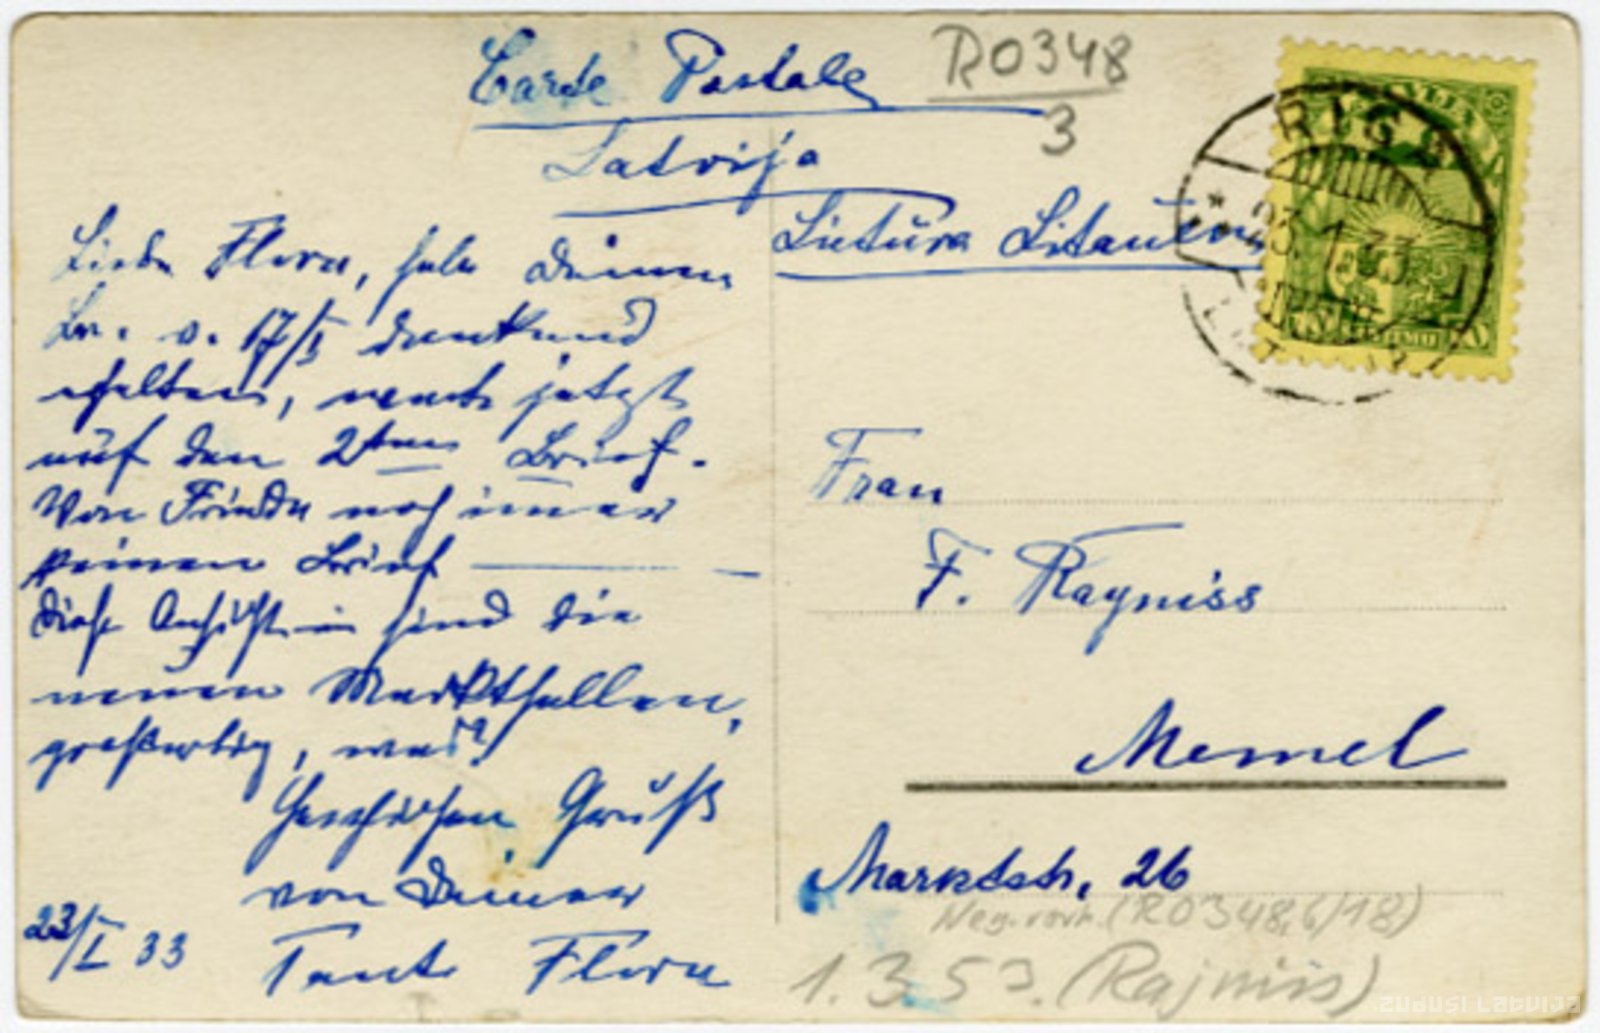 Carde Postale
R0348
3
Latvija
Lietūva Litauen
RIGA
* 23. 1. 33
LATVIJA
Liebe Flora, habe Deinen
Br. v. 17/I dankend
erhalten, warte jetzt
auf den 2ten Brief.
Von Frieda noch immer
keinen Brief
Diese Ansichten sind die
neuen Markthallen,
großartig, was?
Herzlichen Gruß
von Deiner
Tante Flora
23/I 33
Frau
F. Rayniss
Memel
Marktstr. 26
Neg. (R0348,6/18)
1.3.53. (Rajniss)
ZUDUSI LATVIJA